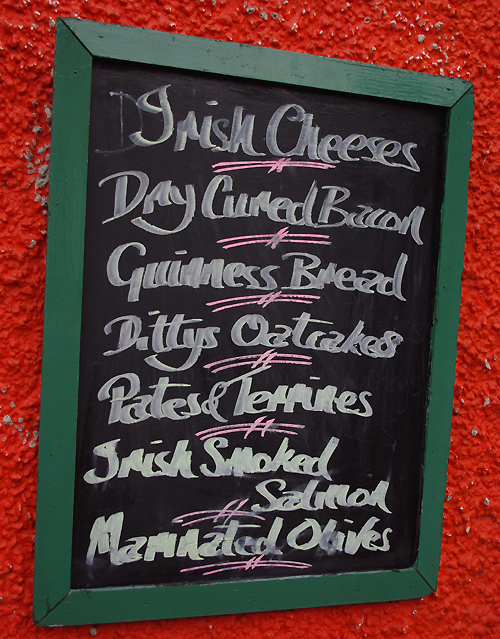 Irish Cheeses
Dry Cured Bacon
Guinness Bread
Dittys Oatcakes
Pates & Terrines
Irish Smoked
Salmon
Marinated Olives